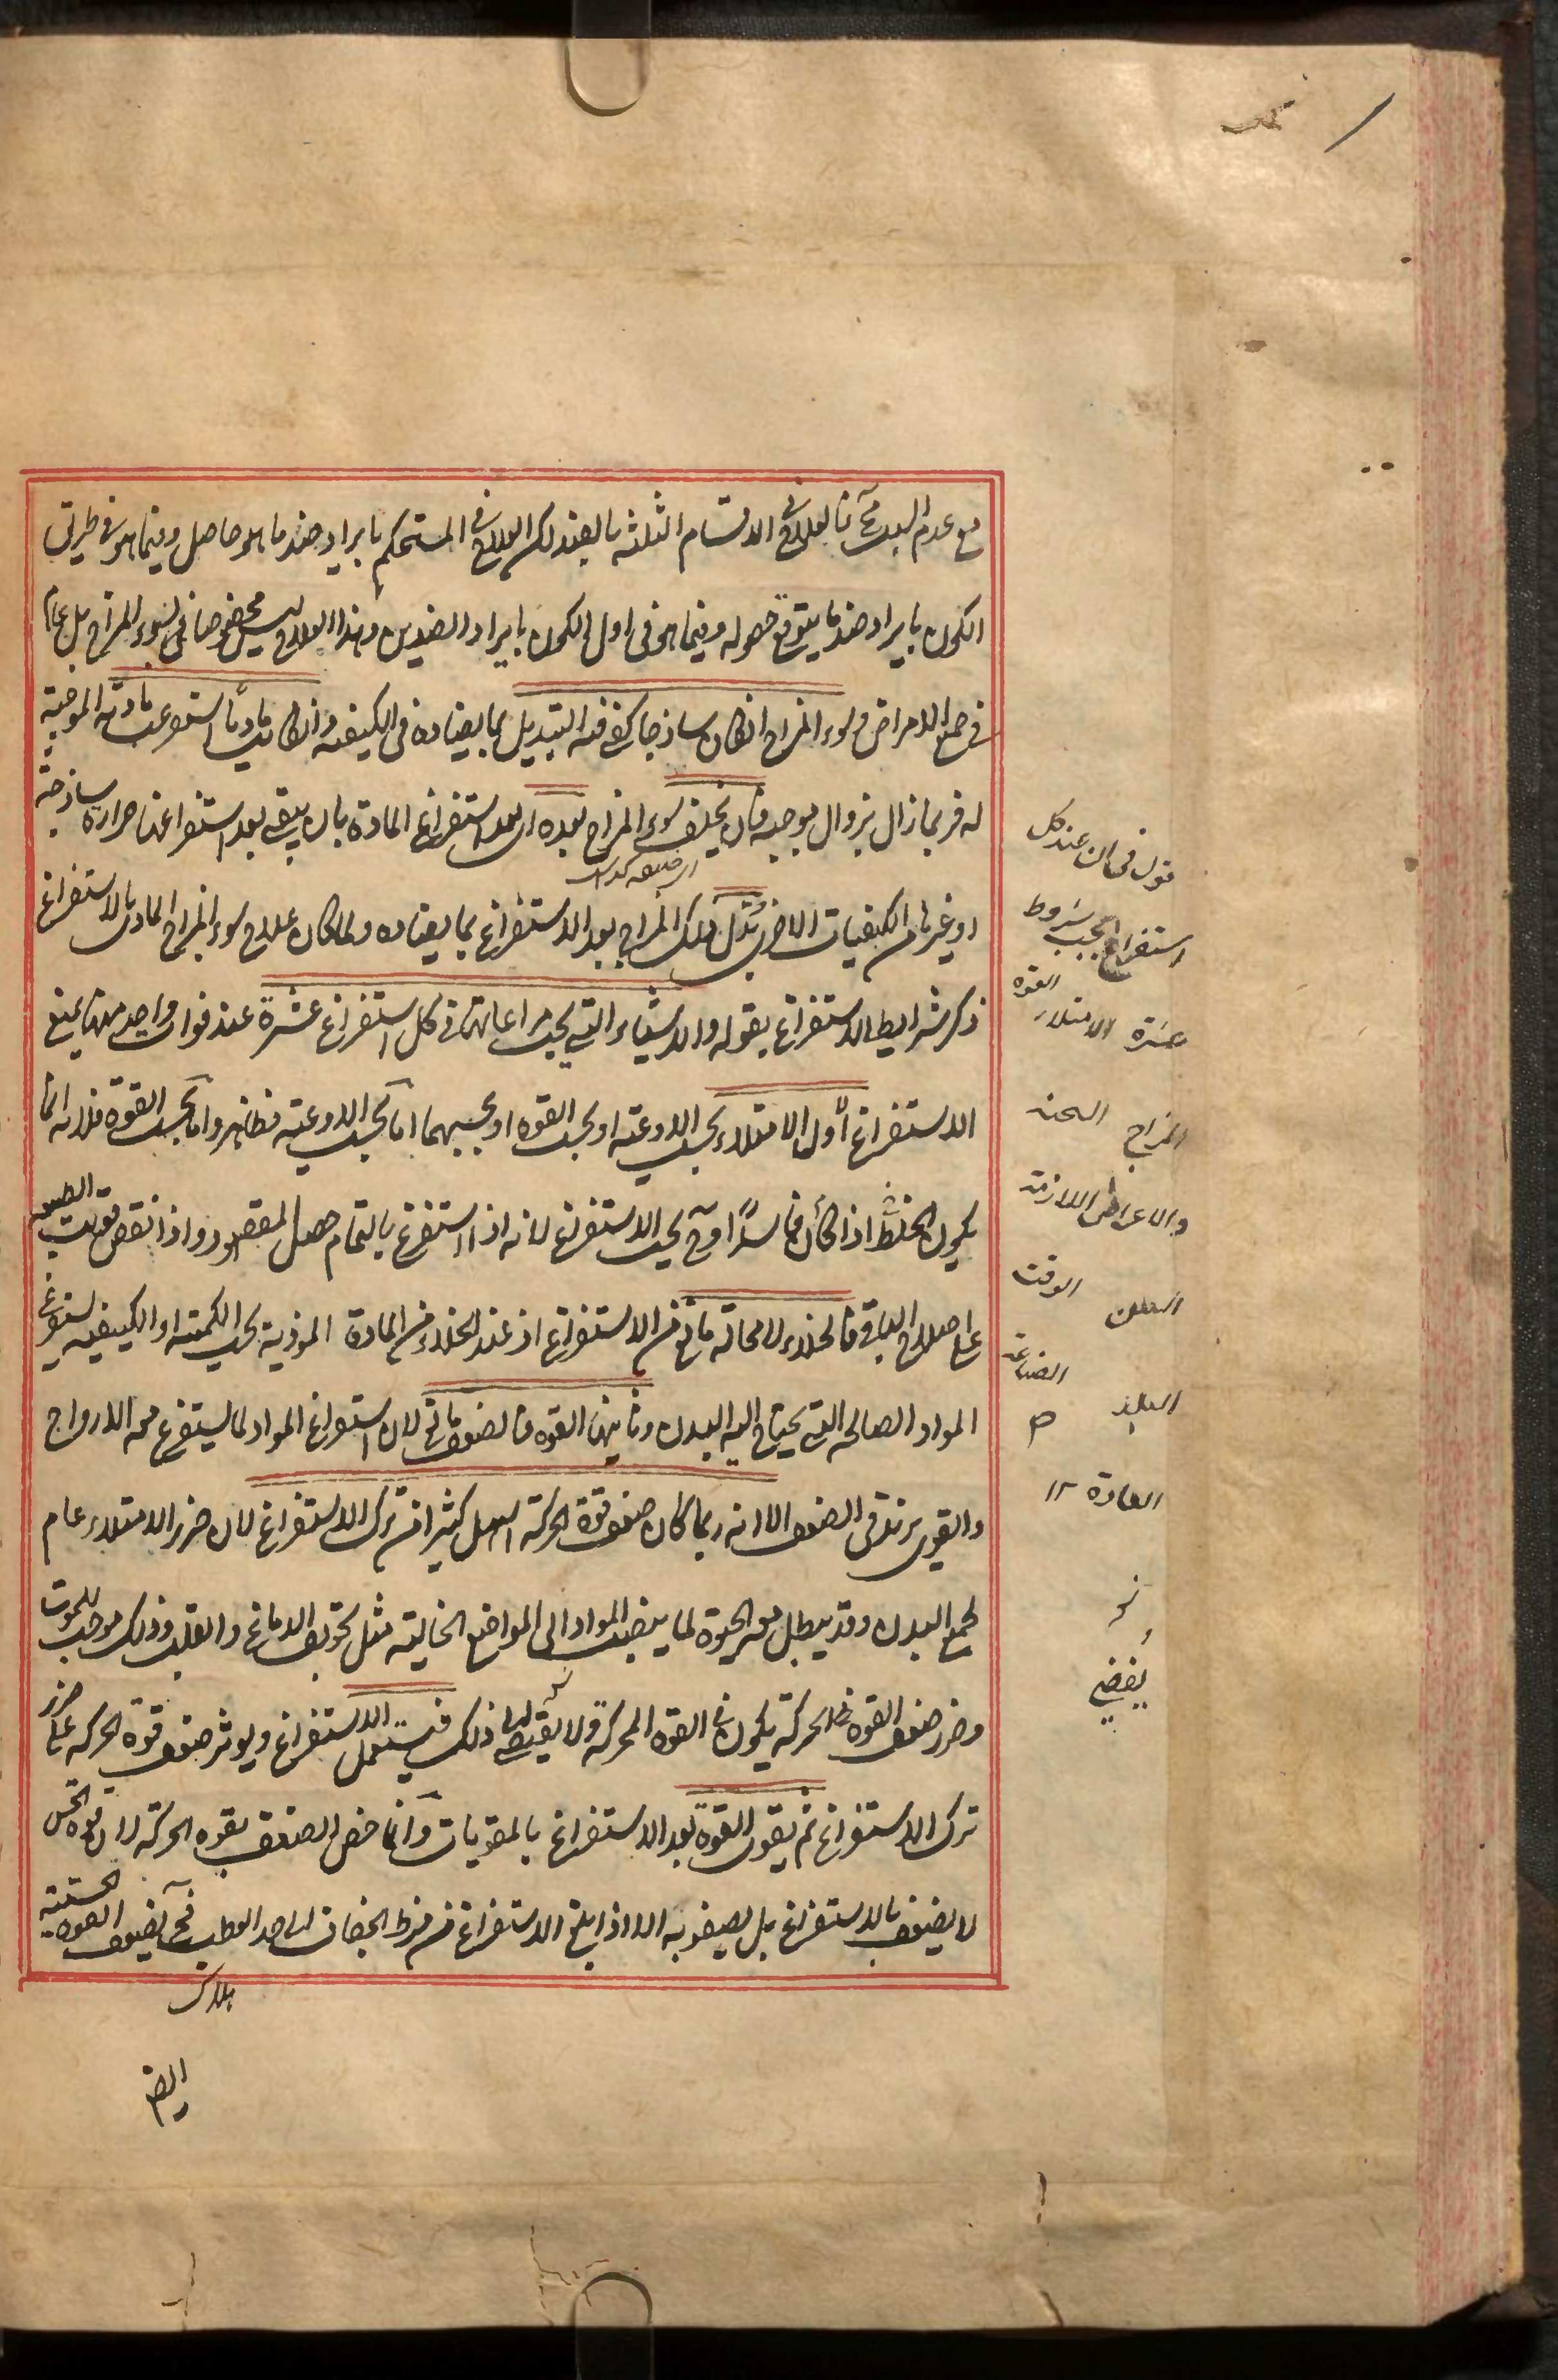 مع عدم السبب فالعلاج في الاقسام الثلثة بالضد لكن العلاج في المستحكم بايراد ضد ما هو حاصل وفيما هو في طريق
الكون بايراد ضد ما يتوقع حصوله وفيما هو في اول الكون بايراد الضدين وهذا العلاج ليس مخصوصا في سوء المزاج بل عام
في جميع الامراض وسوء المزاج ان كان ساذجا كفى فيه التبديل بما يضاده في الكيفية وان كان ماديا استفرغت مادته الموجبة
له فربما زال بزوال موجبه فان تخلف سوء المزاج بعده اي بعد استفراغ المادة بان يبقى بعد استفراغها حرارة ساذجة
او غيرها من الكيفيات الاخرى بُدِّل ذلك المزاج بعد الاستفراغ بما يضاده ولما كان علاج سوء المزاج المادي بالاستفراغ
ذكر شرايط الاستفراغ بقوله والاشياء التي يجب مراعاتها في كل استفراغ عشرة عند فوات واحد منها يمنع
الاستفراغ أول الامتلاء بحسب الاوعية او بحسب القوة او بحسبهما اما بحسب الاوعية فظاهر واما بحسب القوة فلانه انما
يكون الخلط اذا كان فاسدًا وح يجب الاستفراغ لانه اذا استفرغ بالتمام حصل المقصود واذا نقص قويت الطبيعة
على اصلاح الباقي فالخلاء لا محالة مانع من الاستفراغ اذ عند الخلاء من المادة الموذية بحسب الكمية او الكيفية يستفرغ
المواد الصالحة التي يحتاج اليه البدن وثانيها القوة فالضعف مانع لان استفراغ المواد لما يستفرغ معه الارواح
والقوى يزيد في الضعف الا انه ربما كان ضعف قوة الحركة اسهل كثيرا من ترك الاستفراغ لان ضرر الامتلاء عام
لجميع البدن وقد يبطل معه الحيوة لما ينصب المواد الى المواضع الخالية مثل تجويف الدماغ والقلب وذلك موجب للموت
وضرر ضعف القوة في الحركة يكون في القوة المحركة ولا يفضي الى ذلك فيستعمل الاستفراغ ويوثر ضعف قوة الحركة على ضرر
ترك الاستفراغ ثم يقوى القوة بعد الاستفراغ بالمقويات وانما خص الضعف بقوة الحركة لان قوة الحس
لا يضعف بالاستفراغ بل يصفو به الا اذا بلغ الاستفراغ من فرط الجفاف الى حد العطب فح يضعف القوة الحسية
هلاك
ايضا
قوله في ان عند كل
استفراغ يجب شروط
عشرة الامتلاء القوة
المزاج السحنة
والاعراض اللازمة
السن الوقت
البلد الصناعة
العادة ١٢
يفضي